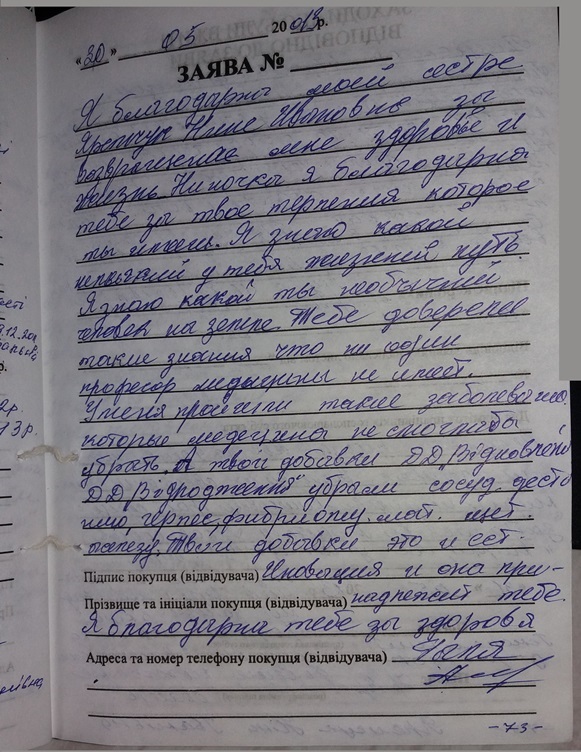 "30" 05 2013 р.
ЗАЯВА №
Я благодарна моей сестре
Нине Ивановне за
мне здоровье и
жизнь. Ниночка я благодарна
тебе за твое терпения которое
ты имееш. Я знаю какой
нелегкий у тебя жизненый путь.
Я знаю какой ты необычний
человек на земле. Тебе доверенее
такие знания что ни один
професор медицины не имеет.
У меня прошели такие заболевания.
которые медецина не смоглабы
убрать. А твои добавки ДД "Відновлення
ДД "Відродження" убрали сосуд. дисто
нию, герпес, фибриому. мат. щет.
Твоги добавки это и ест.
Підпис покупця (відвідувача) Иновация и она при-
Прізвище та ініціали покупця (відвідувача) надлежит тебе.
Я благодарна тебе зы здоровя
Адреса та номер телефону покупця (відвідувача) Галя
-73-